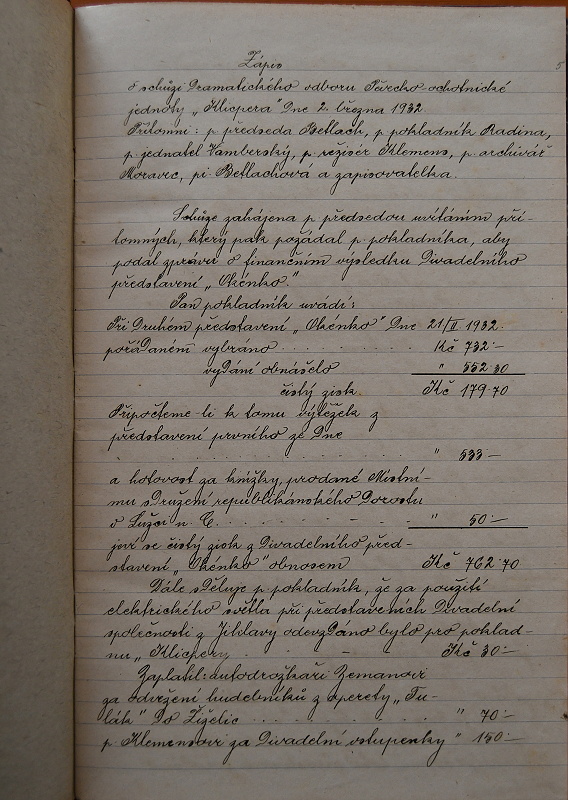 5
Zápis
o schůzi Dramatického odboru Pěvecko ochotnické
jednoty „Klicpera" Dne 2. března 1932
Přítomni: p. předseda Betlach, p. pokladník Radina,
p. jednatel Vamberský, p. režisér Klemens, p. archivář
Moravic, pí. Betlachová a zapisovatelka.
Schůze zahájena p. předsedou uvítáním pří-
tomných, který pak požádal p. pokladníka, aby
podal zprávu o finančním výsledku Divadelního
představení „Okénko."
Pan pokladník uvádí:
Při Druhém představení „Okénko" Dne 21/II 1932.
pořádaném vybráno . . . . . . . Kč 732·–
vydání obnášelo " 552·30
čistý zisk Kč 179·70
Připočteme li k tomu výtěžek z
představení prvního ze Dne
. . . . . . . . . . " 533·–
a hotovost za knížky, prodané Místní-
mu sDružení republikánského Dorostu
v Lužci n. C. . . . . . . . " 50·–
jeví se čistý zisk z Divadelního před-
stavení „Okénko" obnosem Kč 762·70
Dále sděluje p. pokladník, že za použití
elektrického světla při představeních Divadelní
společnosti z Jihlavy odevzDáno bylo pro poklad-
nu „Klicpery . . . Kč 30·–
Zaplatil: autodrožkáři Zemanovi
za odvržení hudebníků z operety „Tu-
lák" Do Žiželic . . . . . . . " 70·–
p. Klemensovi za Divadelní vstupenky " 150·–